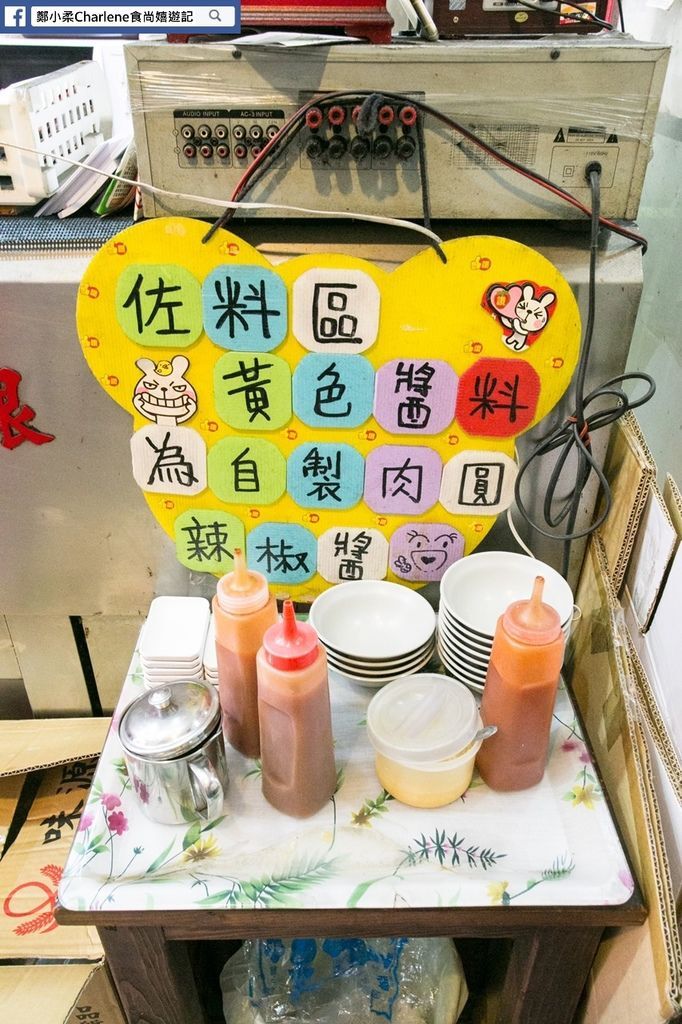 鄭小柔Charlene食尚嬉遊記
AUDIO INPUT AC-3 INPUT
佐料區
黃色醬料
為自製肉圓
辣椒醬
味源